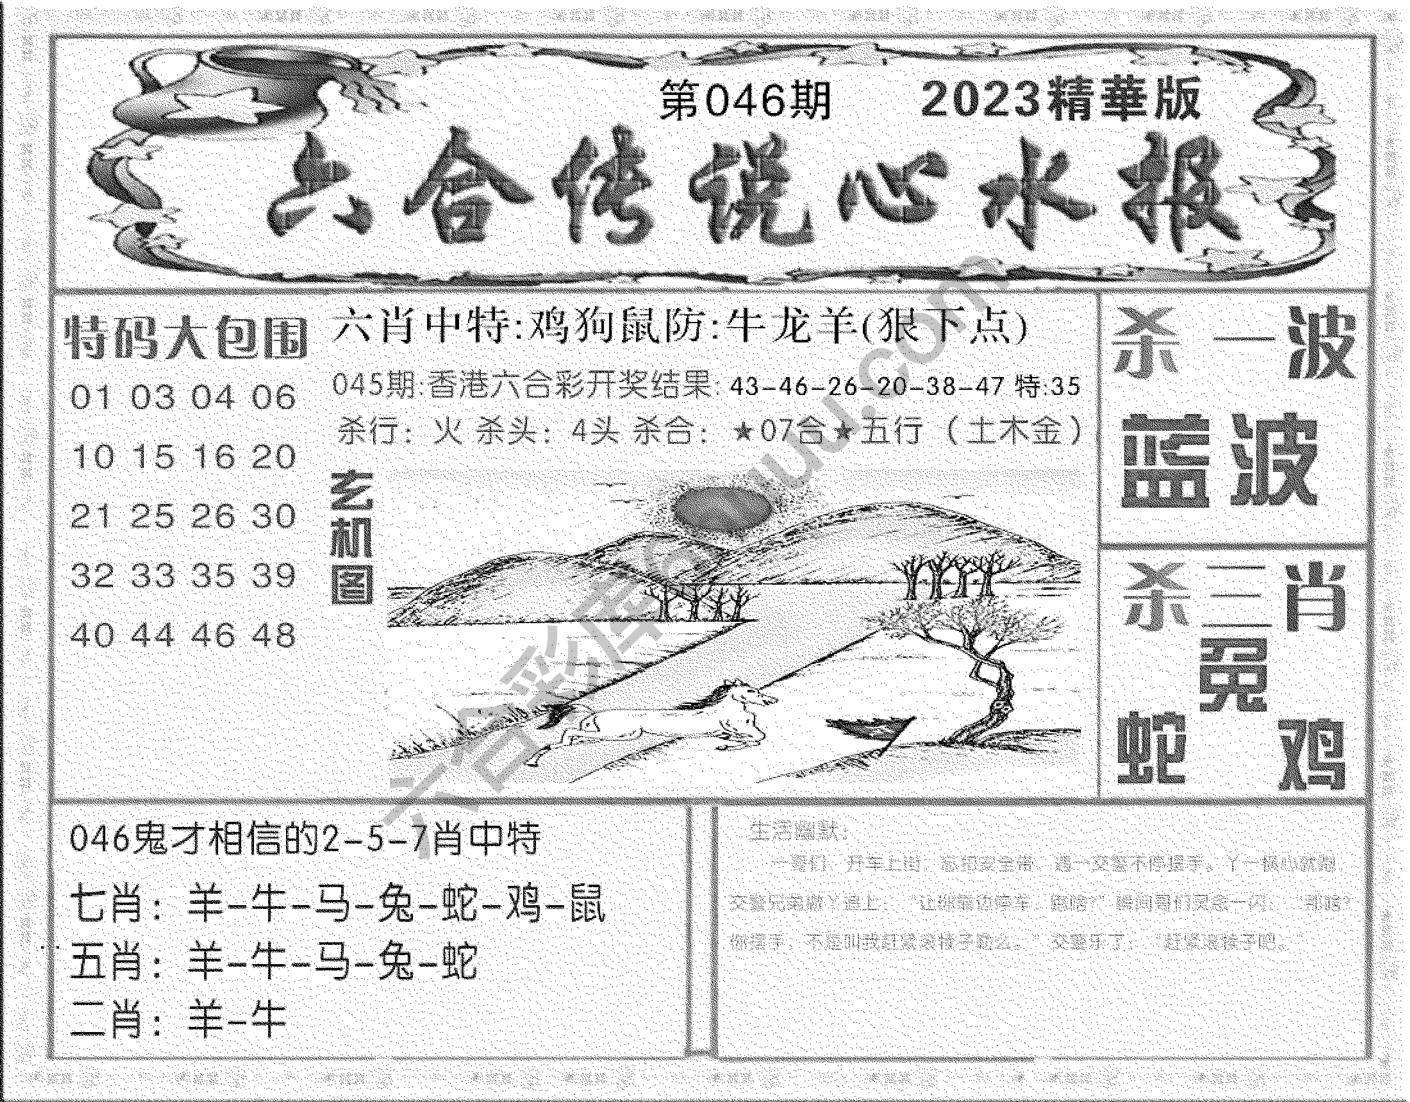 第046期 2023精華版
六合传说心水报
特码大包围
01 03 04 06
10 15 16 20
21 25 26 30
32 33 35 39
40 44 46 48
六肖中特:鸡狗鼠防:牛龙羊(狠下点)
045期:香港六合彩开奖结果: 43-46-26-20-38-47 特:35
杀行：火 杀头：4头 杀合：★07合★五行（土木金）
玄机图
杀一波
蓝波
杀三肖
兔
蛇 鸡
046鬼才相信的2-5-7肖中特
七肖：羊-牛-马-兔-蛇-鸡-鼠
五肖：羊-牛-马-兔-蛇
二肖：羊-牛
生活幽默：
一哥们，开车上街，忘扣安全带，遇一交警不停摆手。丫一操心就跑，
交警兄弟做丫追上：“让你靠边停车，跑啥?”瞬间哥们灵念一闪：“那啥?
你摆手，不是叫我赶紧滚犊子勒么。”交警乐了：“赶紧滚犊子吧。”
六合彩库 uu.com